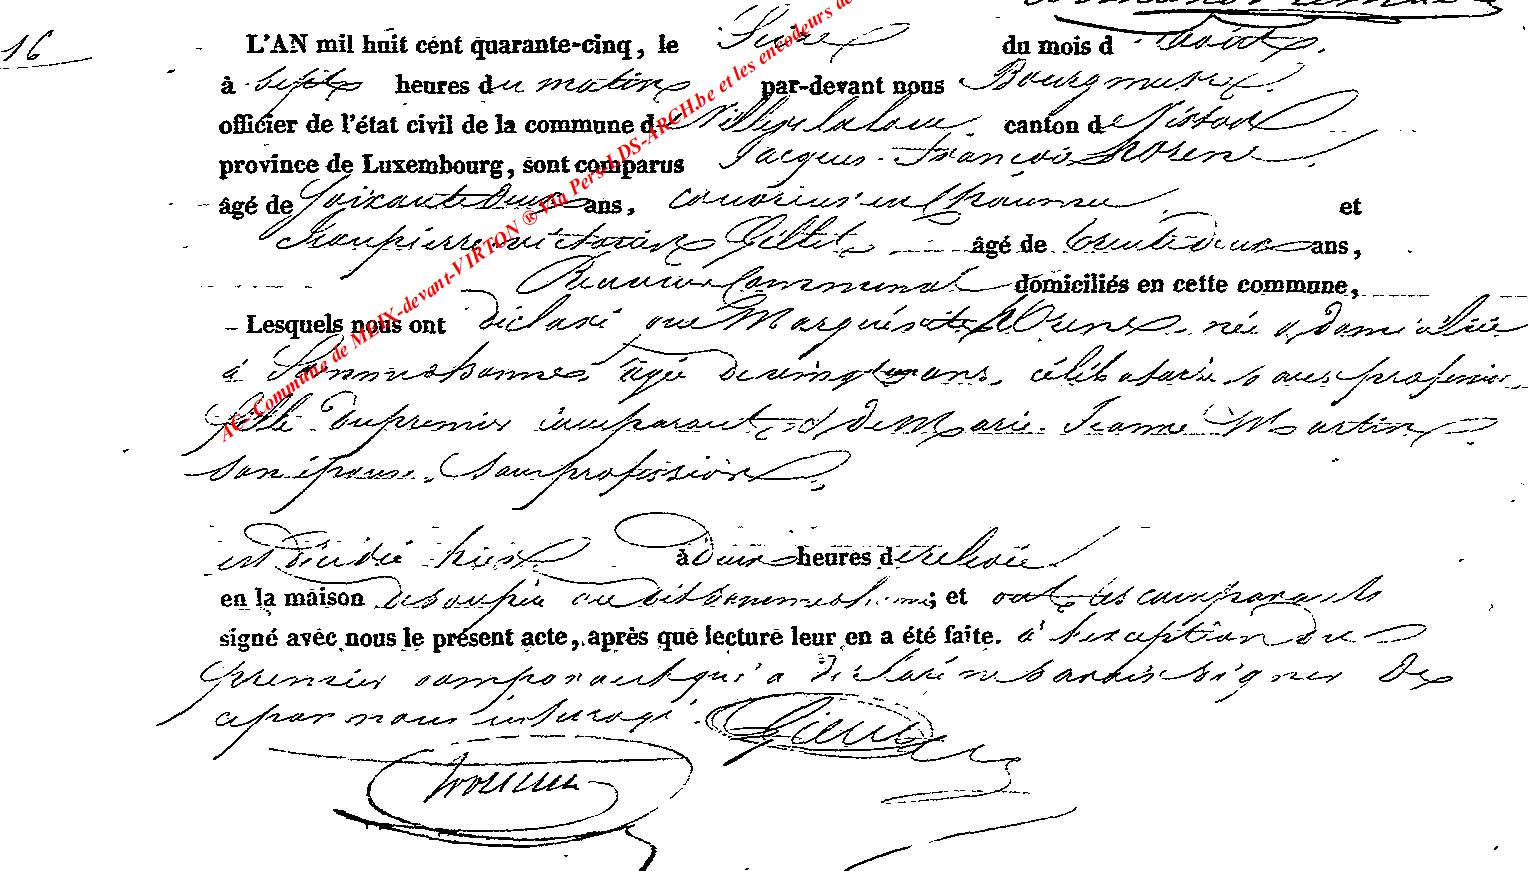 16
L'AN mil huit cent quarante-cinq, le Seize du mois d'Août.
à Sept heures du matin par-devant nous Bourgmestre
officier de l'état civil de la commune de Villers la loue canton de Virton
province de Luxembourg, sont comparus Jacques François
âgé de Soixante deux ans, couvreur en Chaume et
Jean pierre victorin Gillet âgé de trente deux ans,
Receveur Communal domiciliés en cette commune,
Lesquels nous ont déclaré que Marguerite née & domiciliée
à Sommethonne, agée de vingt ans, célibataire, sans profession,
fille du premier comparant & de Marie Jeanne Martin
son épouse, sans profession,
est décédée hier à deux heures de relevée
en la maison de son père au dit Sommethonne; et ont les comparants
signé avec nous le présent acte, après que lecture leur en a été faite. à l'exception du
premier comparant qui a déclaré ne savoir signer de
ce par nous interrogé.
AC-Commune de MEIX-devant-VIRTON ® Via Perso LDS-ARCH.be et les encodeurs de